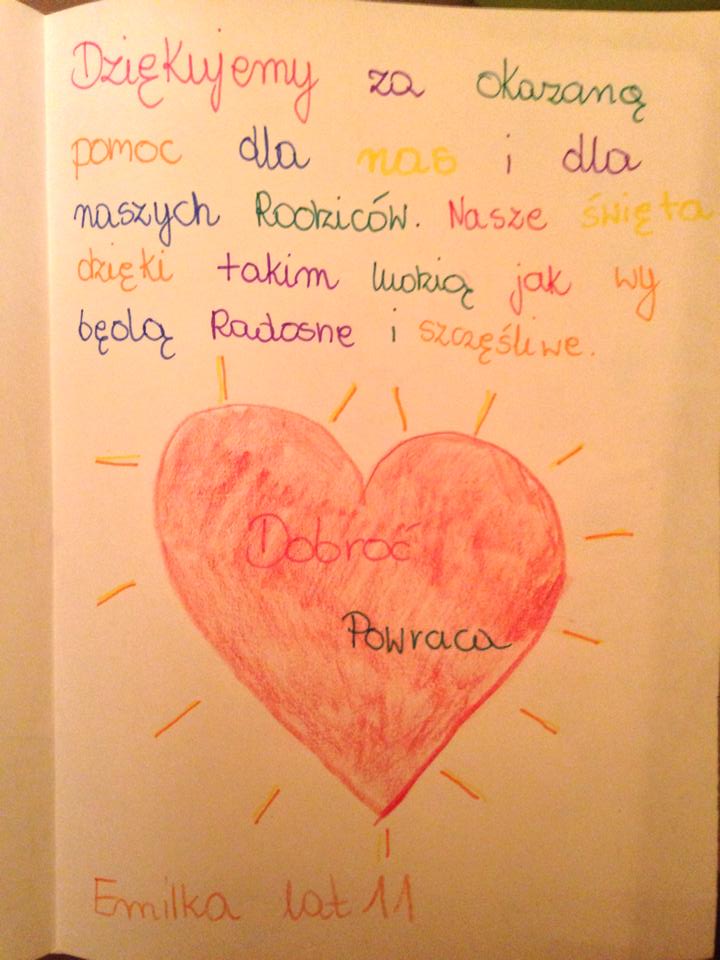 Dziękujemy za okazaną
pomoc dla nas i dla
naszych Rodziców. Nasze święta
dzięki takim ludzią jak wy
będą Radosne i szczęśliwe.
Dobroć
Powraca
Emilka lat 11